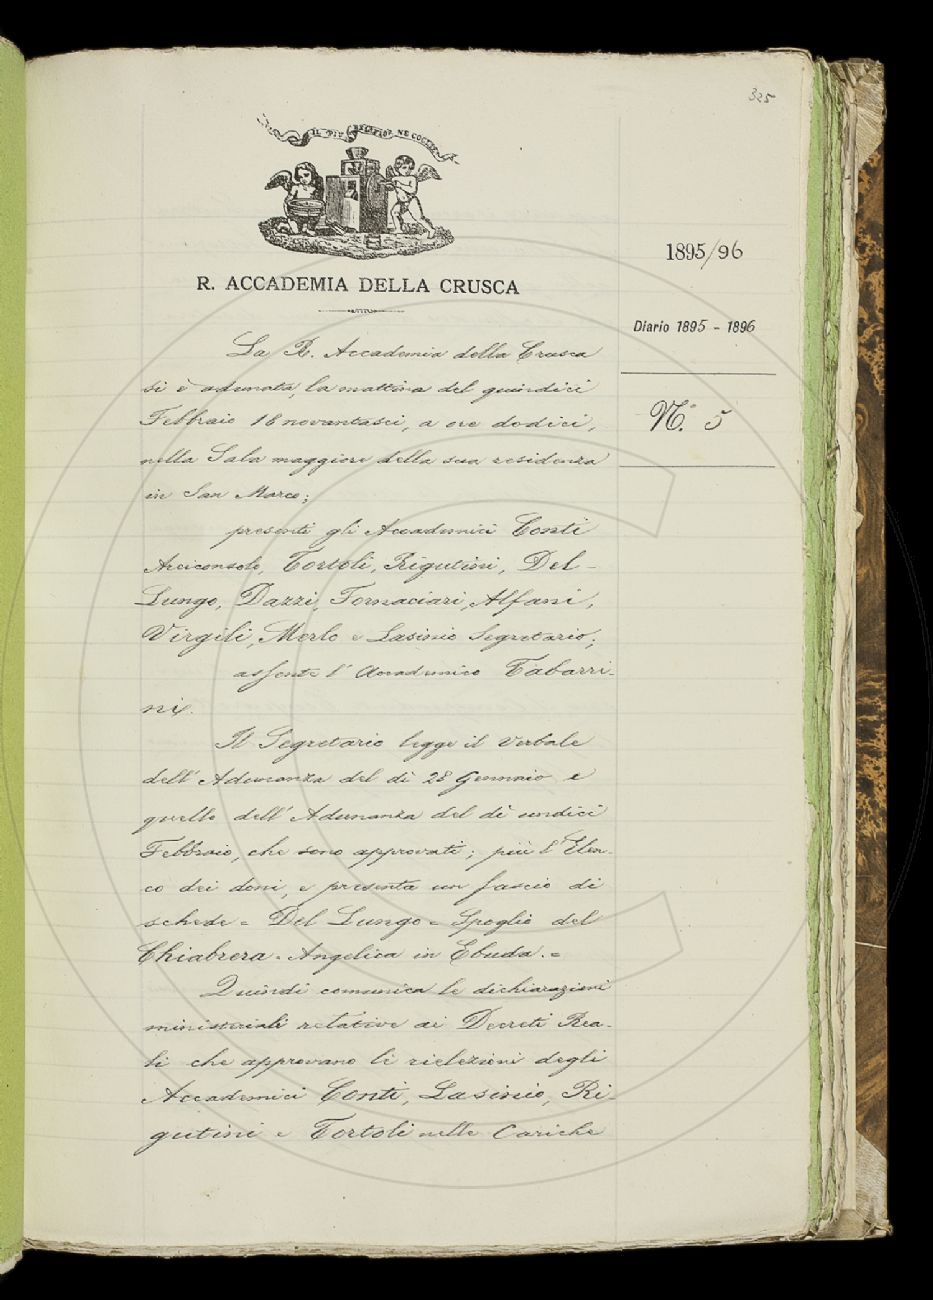 325
IL PIÙ BEL FIOR NE COGLIE
R. ACCADEMIA DELLA CRUSCA
1895/96
Diario 1895 - 1896
N.° 5
La R. Accademia della Crusca
si è adunata, la mattina del quindici
Febbraio 18novantasei, a ore dodici,
nella Sala maggiore della sua residenza
in San Marco;
presenti gli Accademici Conti
Arciconsolo, Tortoli, Rigutini, Del-
Lungo, Dazzi, Tornaciari, Alfani,
Virgili, Merlo e Lasinio Segretario;
assente l' Accademico Tabarri-
ni.
Il Segretario legge il verbale
dell' Adunanza del dì 28 Gennaio e
quello dell' Adunanza del dì undici
Febbraio, che sono approvati; più l'Elen-
co dei doni, e presenta un fascio di
schede = Del Lungo = Spoglio del
Chiabrera - Angelica in Ebuda. =
Quindi comunica le dichiarazioni
ministeriali relative ai Decreti Rea-
li che approvano le rielezioni degli
Accademici Conti, Lasinio, Ri-
gutini e Tortoli nelle Cariche